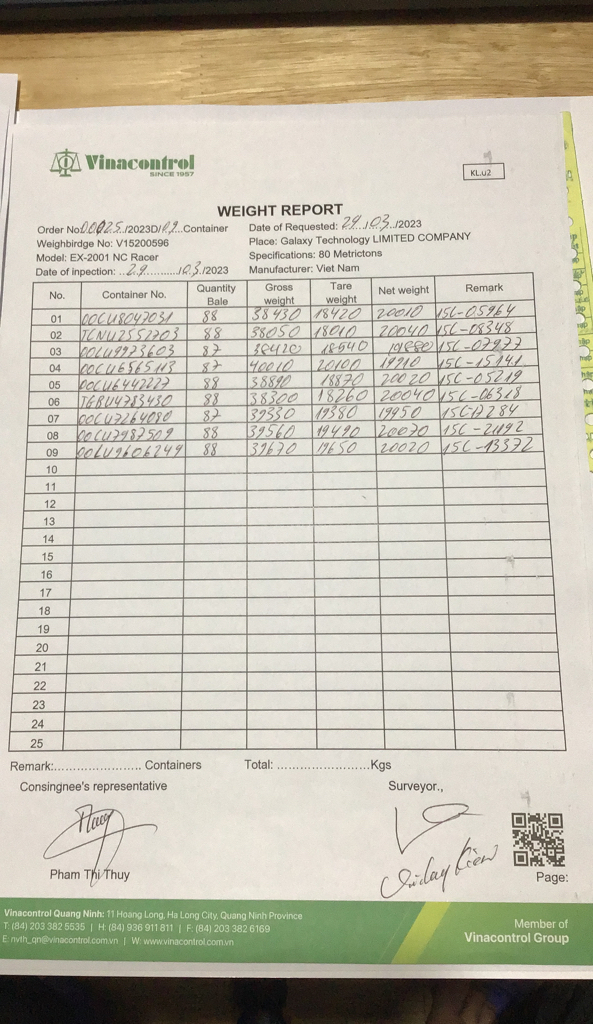 Vinacontrol
SINCE 1957
KL.02
WEIGHT REPORT
Order No: 00025/2023D/09 Container
Date of Requested: 29/03/2023
Weighbirdge No: V15200596
Place: Galaxy Technology LIMITED COMPANY
Model: EX-2001 NC Racer
Specifications: 80 Metrictons
Date of inpection: 29/03/2023
Manufacturer: Viet Nam
No. Container No. Quantity Bale Gross weight Tare weight Net weight Remark
01 OOCU8047031 88 38430 18420 20010 15C-05964
02 TCNU2552703 88 38050 18010 20040 15C-08348
03 87 38420 18540 19880 15C-07977
04 OOCU6565113 87 40010 20100 19910 15C-15141
05 OOCU6447227 88 38890 18870 20020 15C-05219
06 88 38300 18260 20040 15C-06318
07 OOCU7264080 87 39330 19380 19950
08 OOCU7987509 88 39560 19490 20070
09 OOCU9606249 88 39670 19650 20020 15C-13372
10
11
12
13
14
15
16
17
18
19
20
21
22
23
24
25
Remark:........................ Containers Total: .........................Kgs
Consingnee's representative
Surveyor.,
Pham Thi Thuy
Page:
Vinacontrol Quang Ninh: 11 Hoang Long, Ha Long City, Quang Ninh Province
T: (84) 203 382 5535 | H: (84) 936 911 811 | F: (84) 203 382 6169
E: nvth_qn@vinacontrol.com.vn | W: www.vinacontrol.com.vn
Member of
Vinacontrol Group